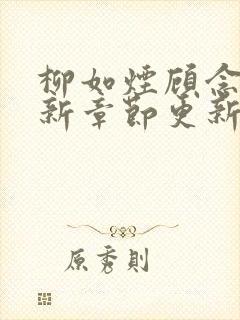 柳如煙顾念
新章節更新
原秀則